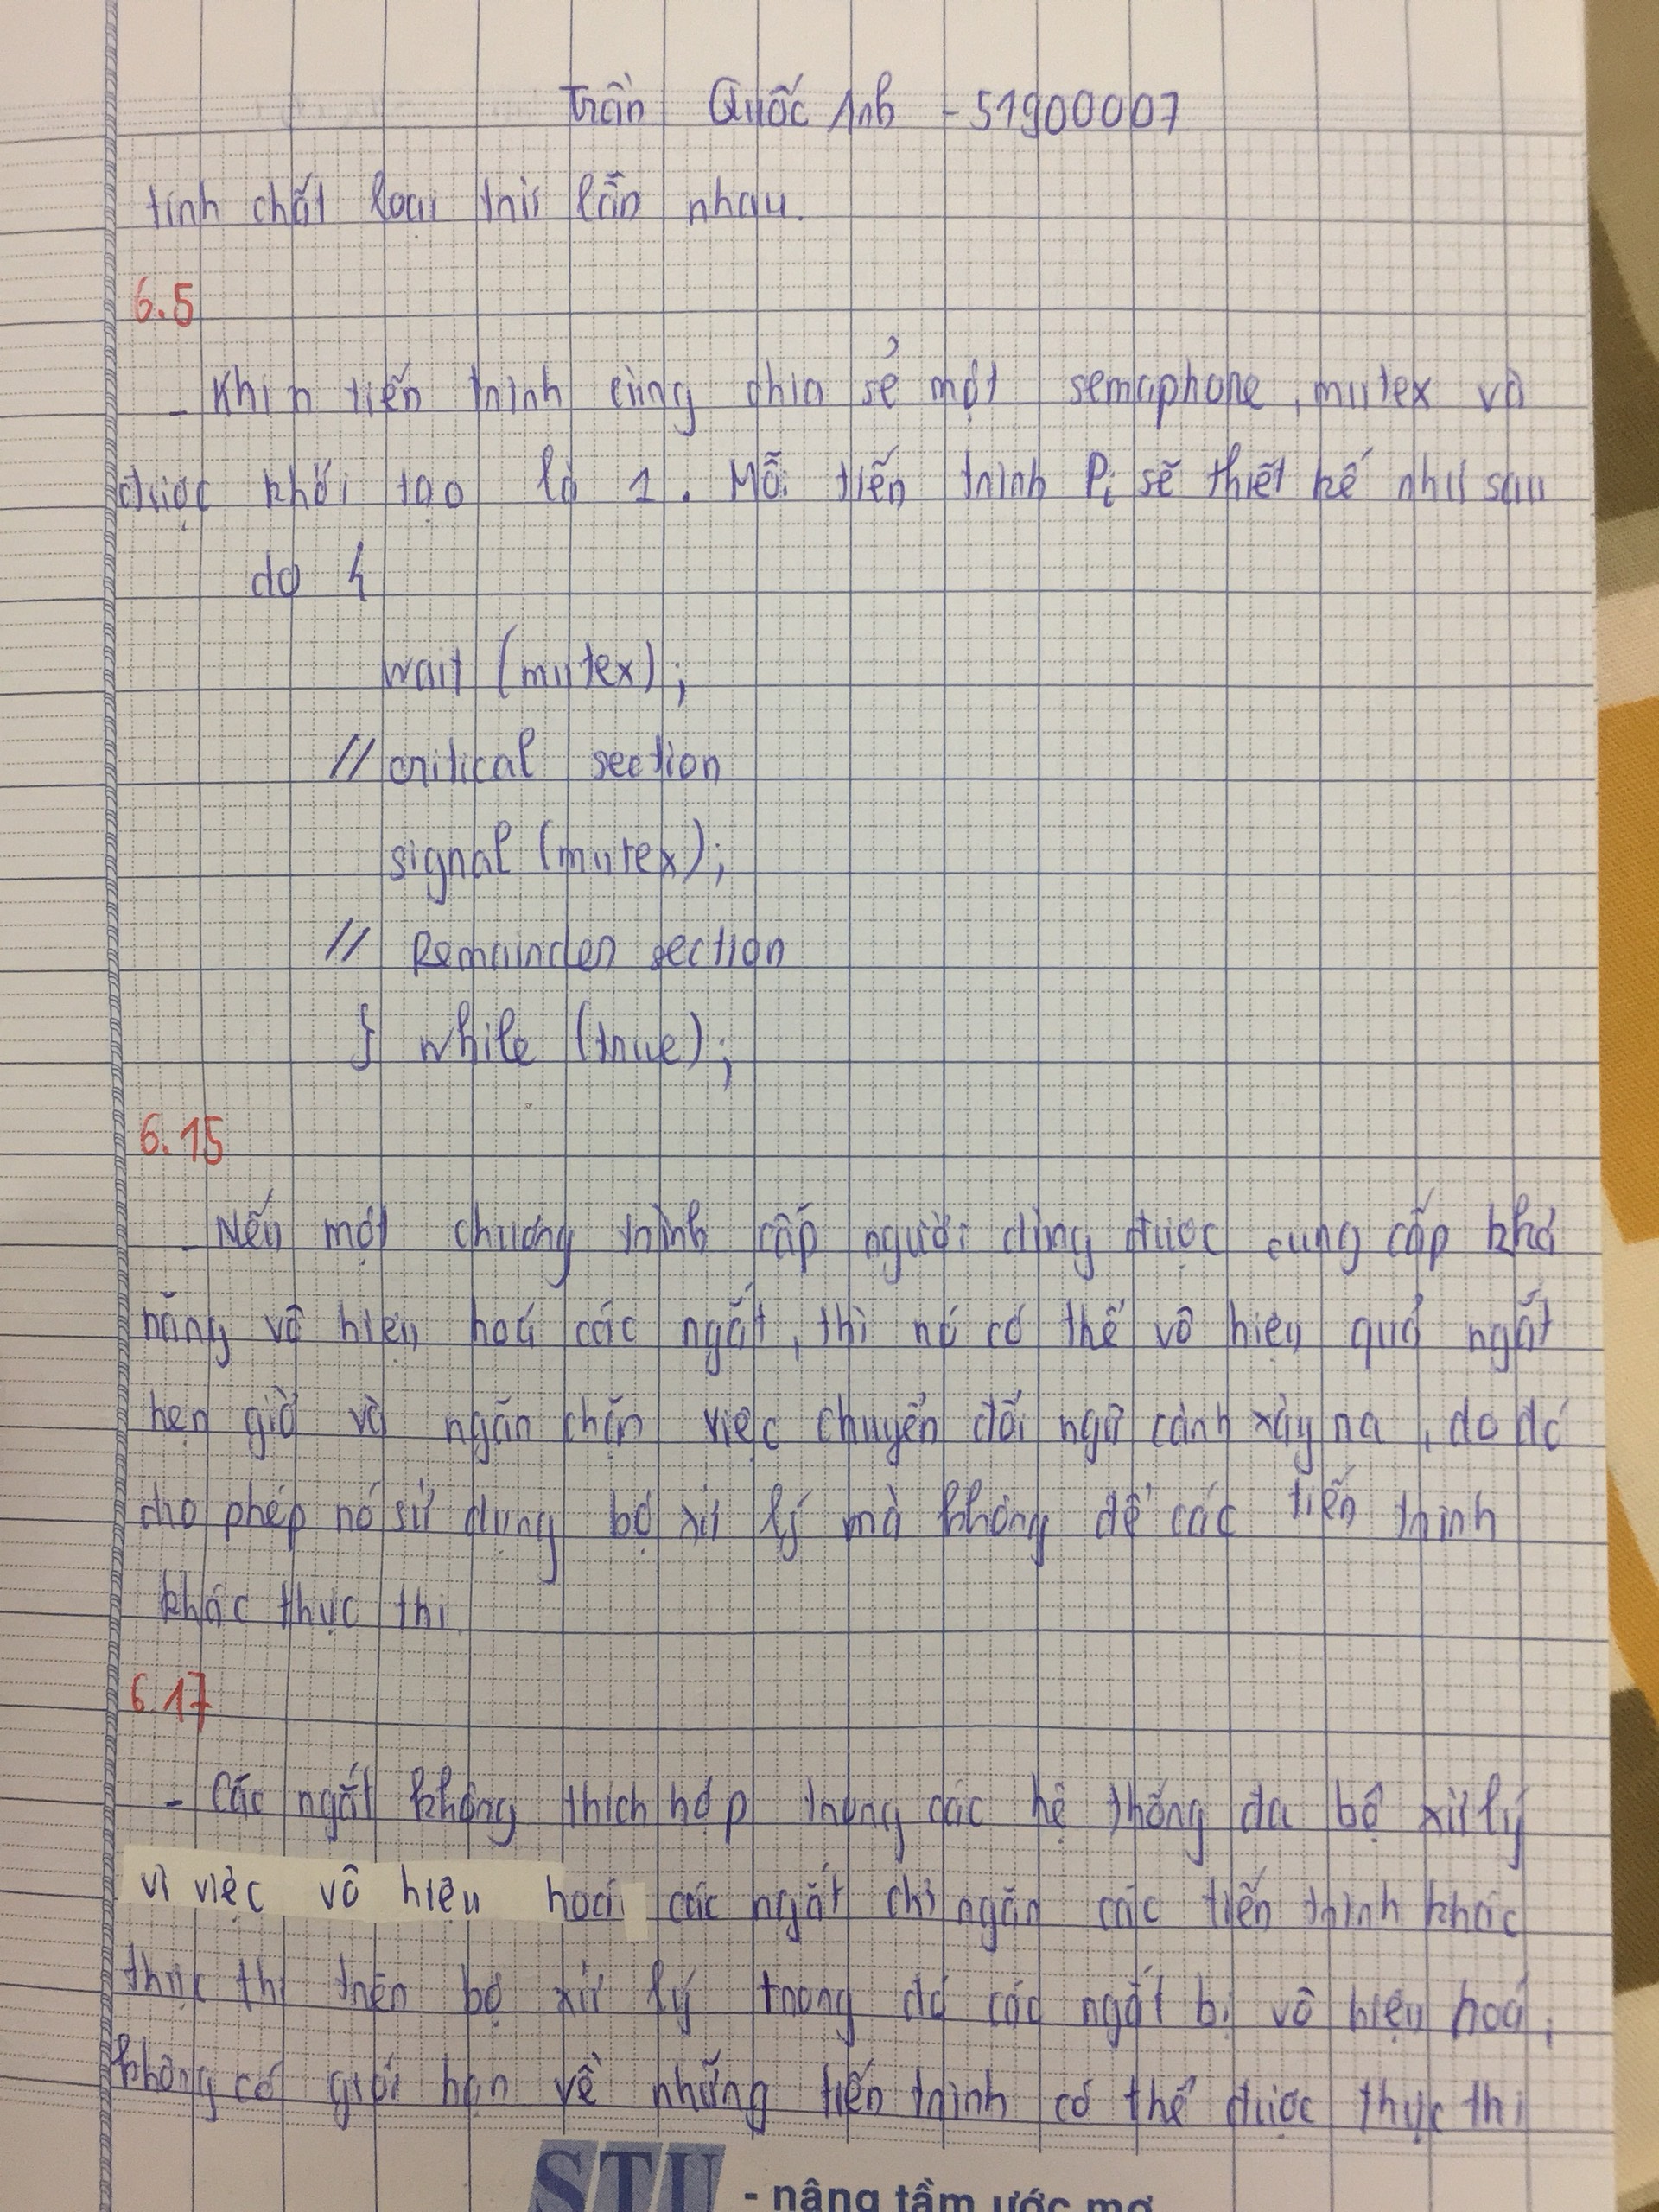 Trần Quốc Anh - 51900007
tính chất loại trừ lẫn nhau.
6.5
- Khi n tiến trình cùng chia sẻ một semaphore, mutex và
được khởi tạo là 1. Mỗi tiến trình Pi sẽ thiết kế như sau
do {
wait (mutex);
// critical section
signal (mutex);
// Remainder section
} while (true);
6.15
- Nếu một chương trình cấp người dùng được cung cấp khả
năng vô hiệu hoá các ngắt, thì nó có thể vô hiệu quả ngắt
hẹn giờ và ngăn chặn việc chuyển đổi ngữ cảnh xảy ra, do đó
cho phép nó sử dụng bộ xử lý mà không để các tiến trình
khác thực thi
6.17
- Các ngắt không thích hợp trong các hệ thống đa bộ xử lý
vì việc vô hiệu hoá các ngắt chỉ ngăn các tiến trình khác
thực thi trên bộ xử lý trong đó các ngắt bị vô hiệu hoá,
không có giới hạn về những tiến trình có thể được thực thi
STU - nâng tầm ước mơ